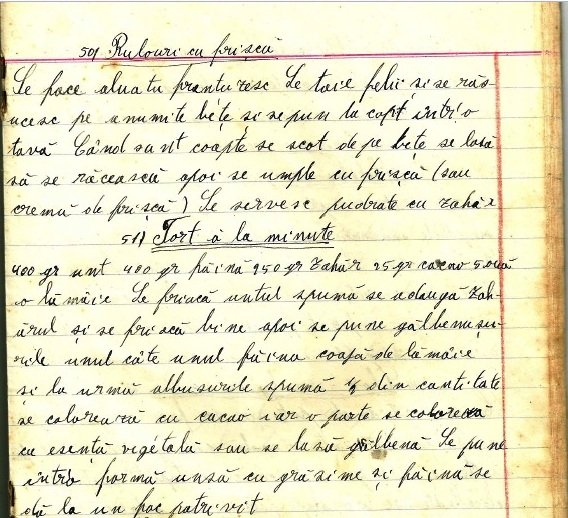 50) Rulouri cu frișcă
Se face aluatu franțuzesc Se taie felii și se răs-
ucesc pe anumite bețe și se pun la copt într'o
tavă Când sunt coapte se scot de pe bețe se lasă
să se răcească apoi se umple cu frișcă (sau
cremă de frișcă) Se servesc pudrate cu zahăr
51) Tort à la minute
400 gr unt 400 gr făină 250 gr zahăr 25 gr cacao 5 ouă
o lămâie Se freacă untul spumă se adaugă zah-
ărul și se freacă bine apoi se pune gălbenușu-
rile unul câte unul făina coajă de lămâie
și la urmă albușurile spumă ½ din cantitate
se colorează cu cacao iar o parte se colorează
cu esență vegetală sau se lasă gălbenă Se pune
intro formă unsă cu grăsime și făină se
dă la un foc potrivit